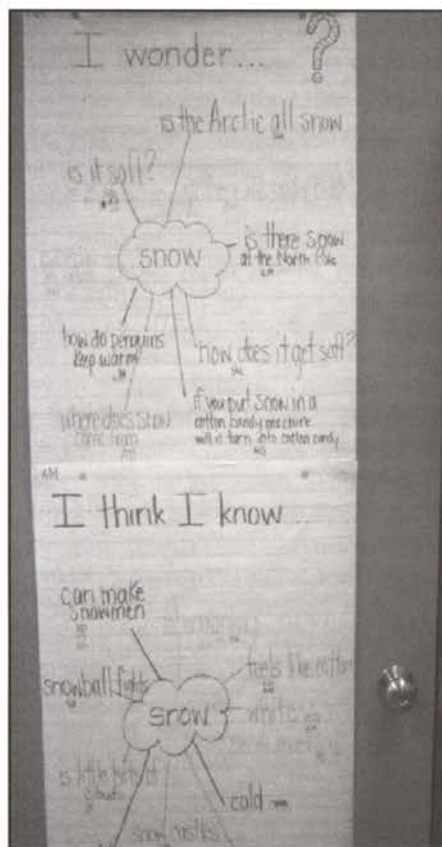 I wonder... ?
is the Arctic all snow
is it soft?
snow
is there snow
at the North Pole
how do penguins
keep warm
how does it get soft?
where does snow
come from
if you put snow in a
cotton candy machine
will it turn into cotton candy
AM
I think I know...
can make
snowmen
snowball fights
feels like cotton
snow
white
is little bits of
clouds
cold
snow castles